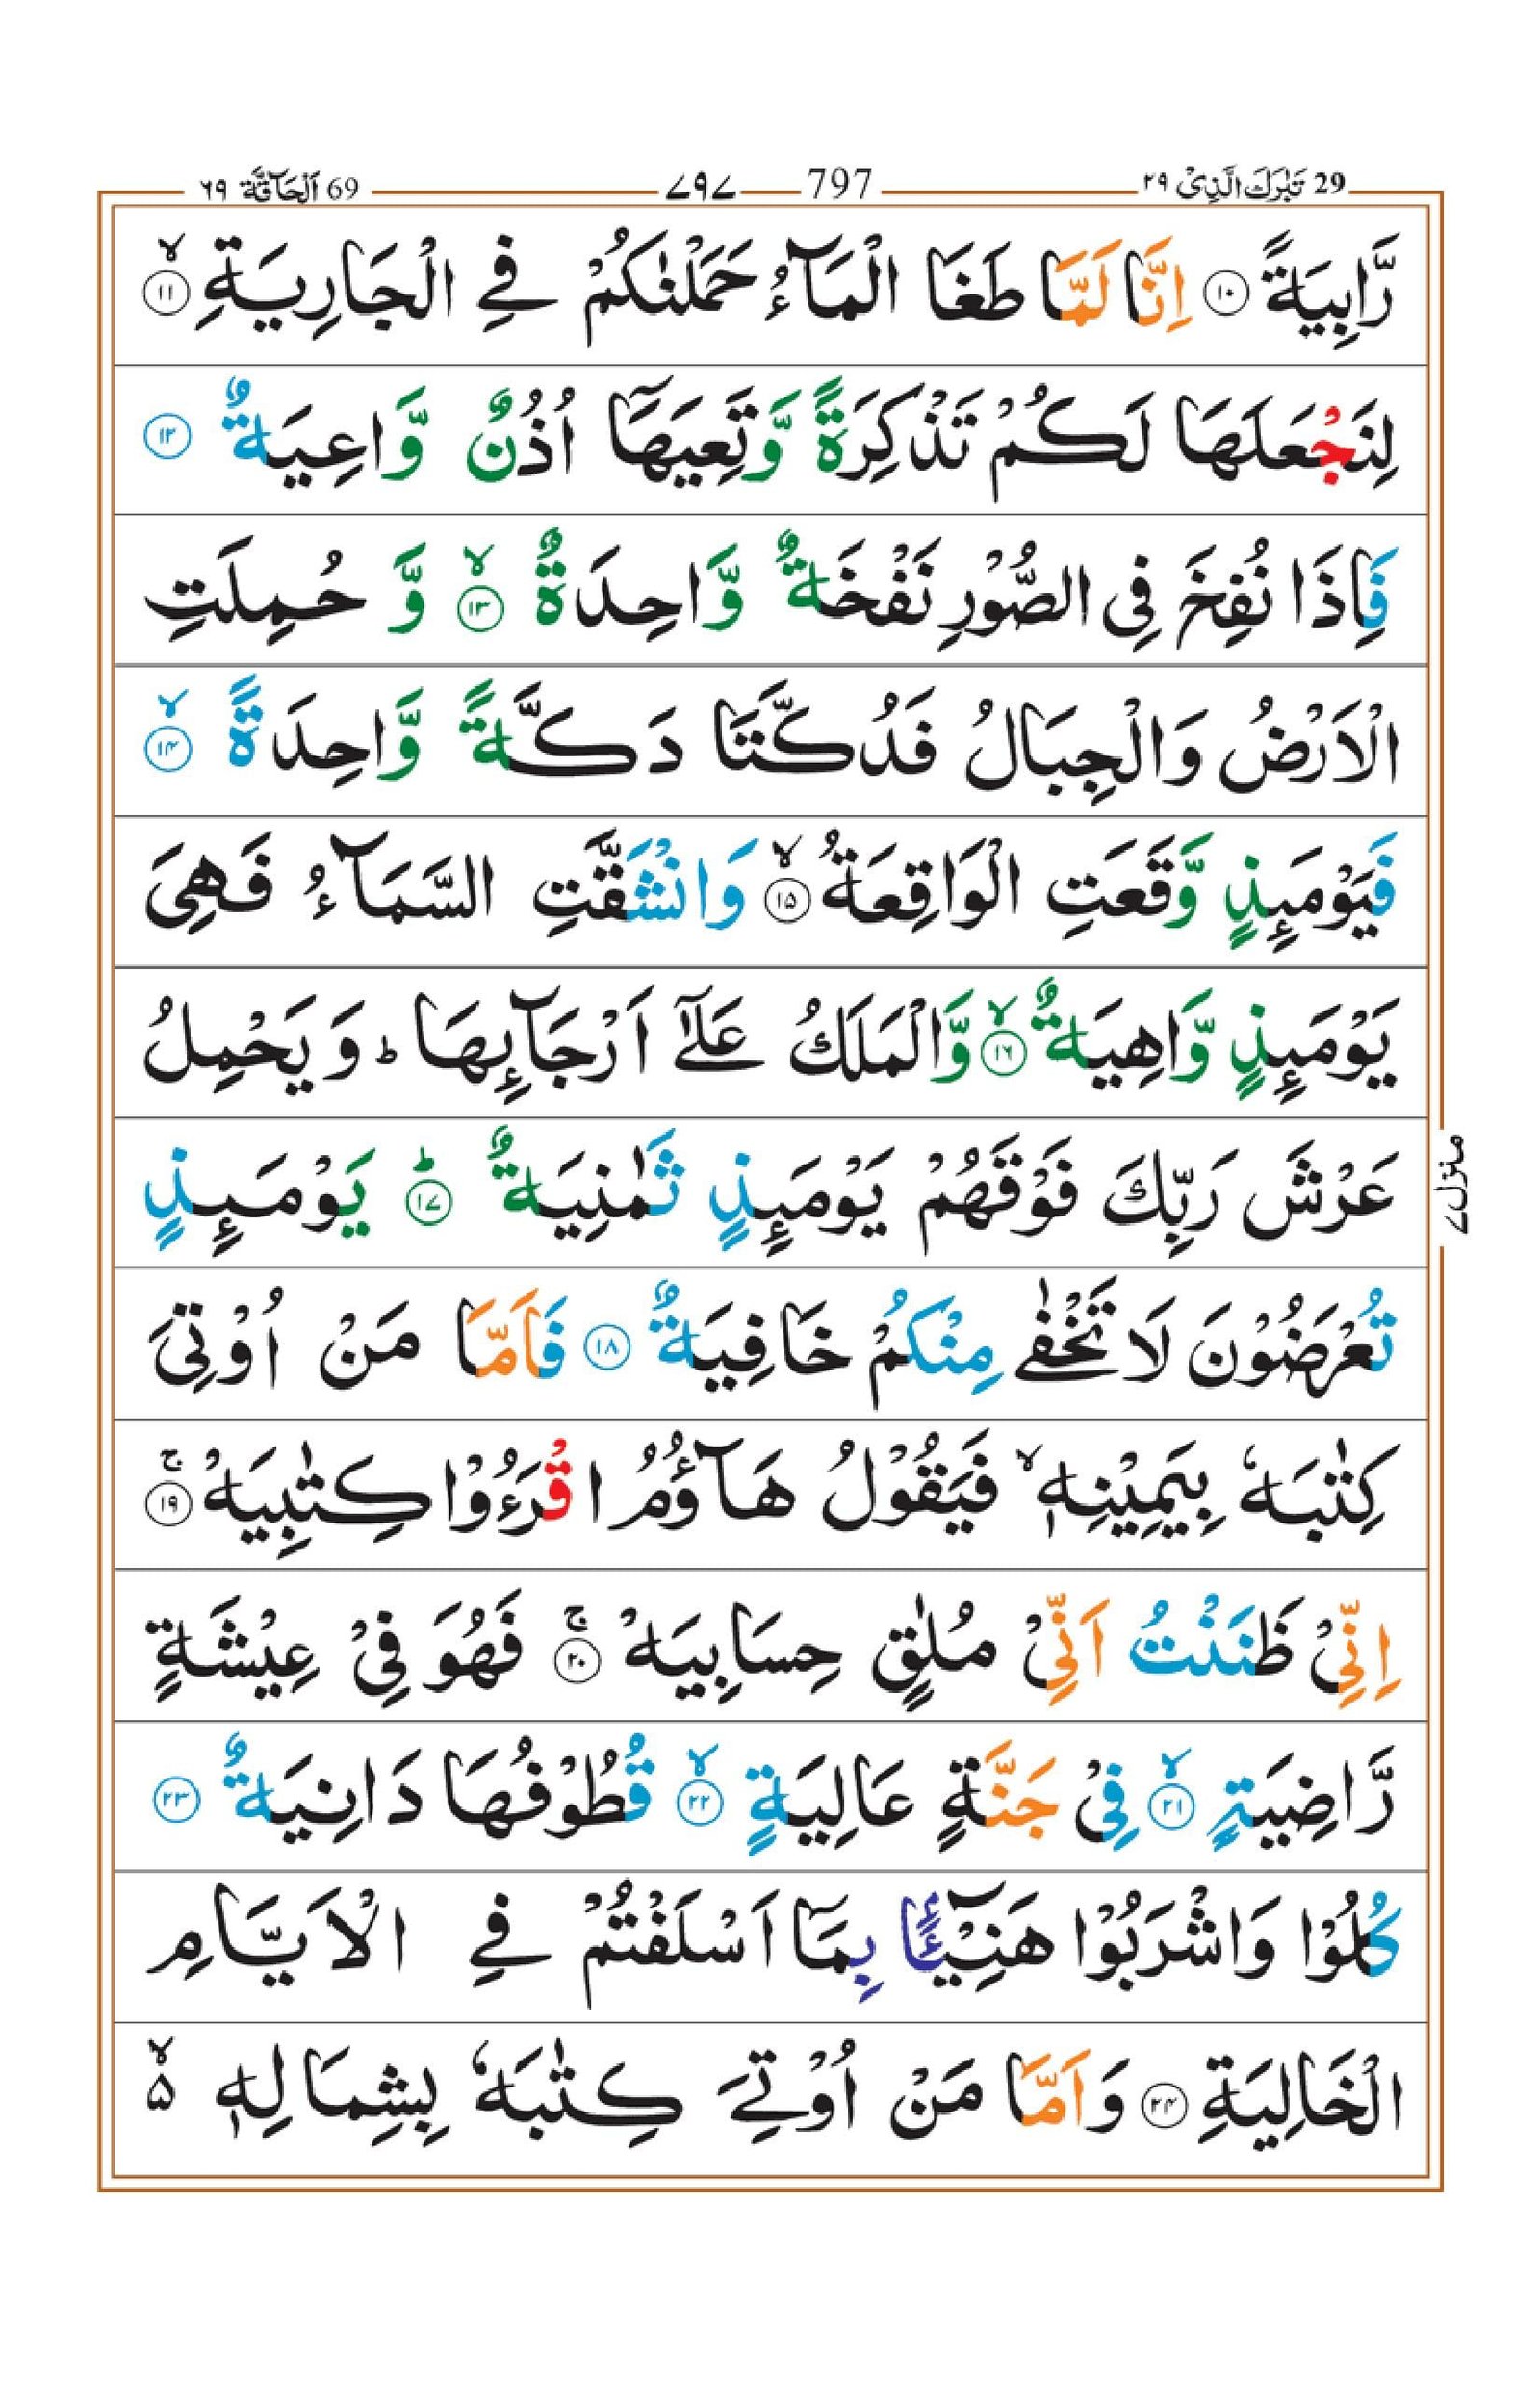 29 تَبٰرَكَ الَّذِیْ ٢٩ 797 ٧٩٧ 69 اَلْحَآقَّة ٦٩
رَّابِیَةً ﴿۱۰﴾ اِنَّا لَمَّا طَغَا الْمَآءُ حَمَلْنٰكُمْ فِی الْجَارِیَةِ ﴿۱۱﴾ۙ
لِنَجْعَلَهَا لَكُمْ تَذْكِرَةً وَّتَعِیَهَاۤ اُذُنٌ وَّاعِیَةٌ ﴿۱۲﴾
فَاِذَا نُفِخَ فِی الصُّوْرِ نَفْخَةٌ وَّاحِدَةٌ ﴿۱۳﴾ۙ وَّ حُمِلَتِ
الْاَرْضُ وَالْجِبَالُ فَدُكَّتَا دَكَّةً وَّاحِدَةً ﴿۱۴﴾ۙ
فَیَوْمَىِٕذٍ وَّقَعَتِ الْوَاقِعَةُ ﴿۱۵﴾ۙ وَانْشَقَّتِ السَّمَآءُ فَهِیَ
یَوْمَىِٕذٍ وَّاهِیَةٌ ﴿۱۶﴾ۙ وَّالْمَلَكُ عَلٰۤی اَرْجَآىِٕهَا ؕ وَ یَحْمِلُ
عَرْشَ رَبِّكَ فَوْقَهُمْ یَوْمَىِٕذٍ ثَمٰنِیَةٌ ﴿۱۷﴾ؕ یَوْمَىِٕذٍ
تُعْرَضُوْنَ لَا تَخْفٰی مِنْكُمْ خَافِیَةٌ ﴿۱۸﴾ فَاَمَّا مَنْ اُوْتِیَ
كِتٰبَهٗ بِیَمِیْنِهٖ ۙ فَیَقُوْلُ هَآؤُمُ اقْرَءُوْا كِتٰبِیَهْ ﴿۱۹﴾ۚ
اِنِّیْ ظَنَنْتُ اَنِّیْ مُلٰقٍ حِسَابِیَهْ ﴿۲۰﴾ۚ فَهُوَ فِیْ عِیْشَةٍ
رَّاضِیَةٍ ﴿۲۱﴾ۙ فِیْ جَنَّةٍ عَالِیَةٍ ﴿۲۲﴾ۙ قُطُوْفُهَا دَانِیَةٌ ﴿۲۳﴾
كُلُوْا وَاشْرَبُوْا هَنِیْٓـًٔۢا بِمَاۤ اَسْلَفْتُمْ فِی الْاَیَّامِ
الْخَالِیَةِ ﴿۲۴﴾ وَاَمَّا مَنْ اُوْتِیَ كِتٰبَهٗ بِشِمَالِهٖ ۙ۵
منزل ٧